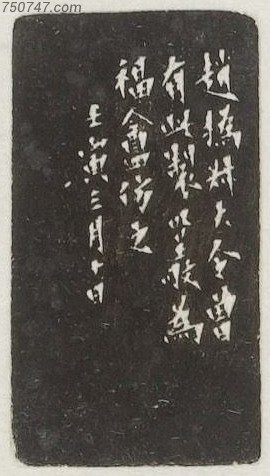 750747.com
趙撝叔大令曾
有此製叔蓋為
福盦仿之
壬寅三月十日